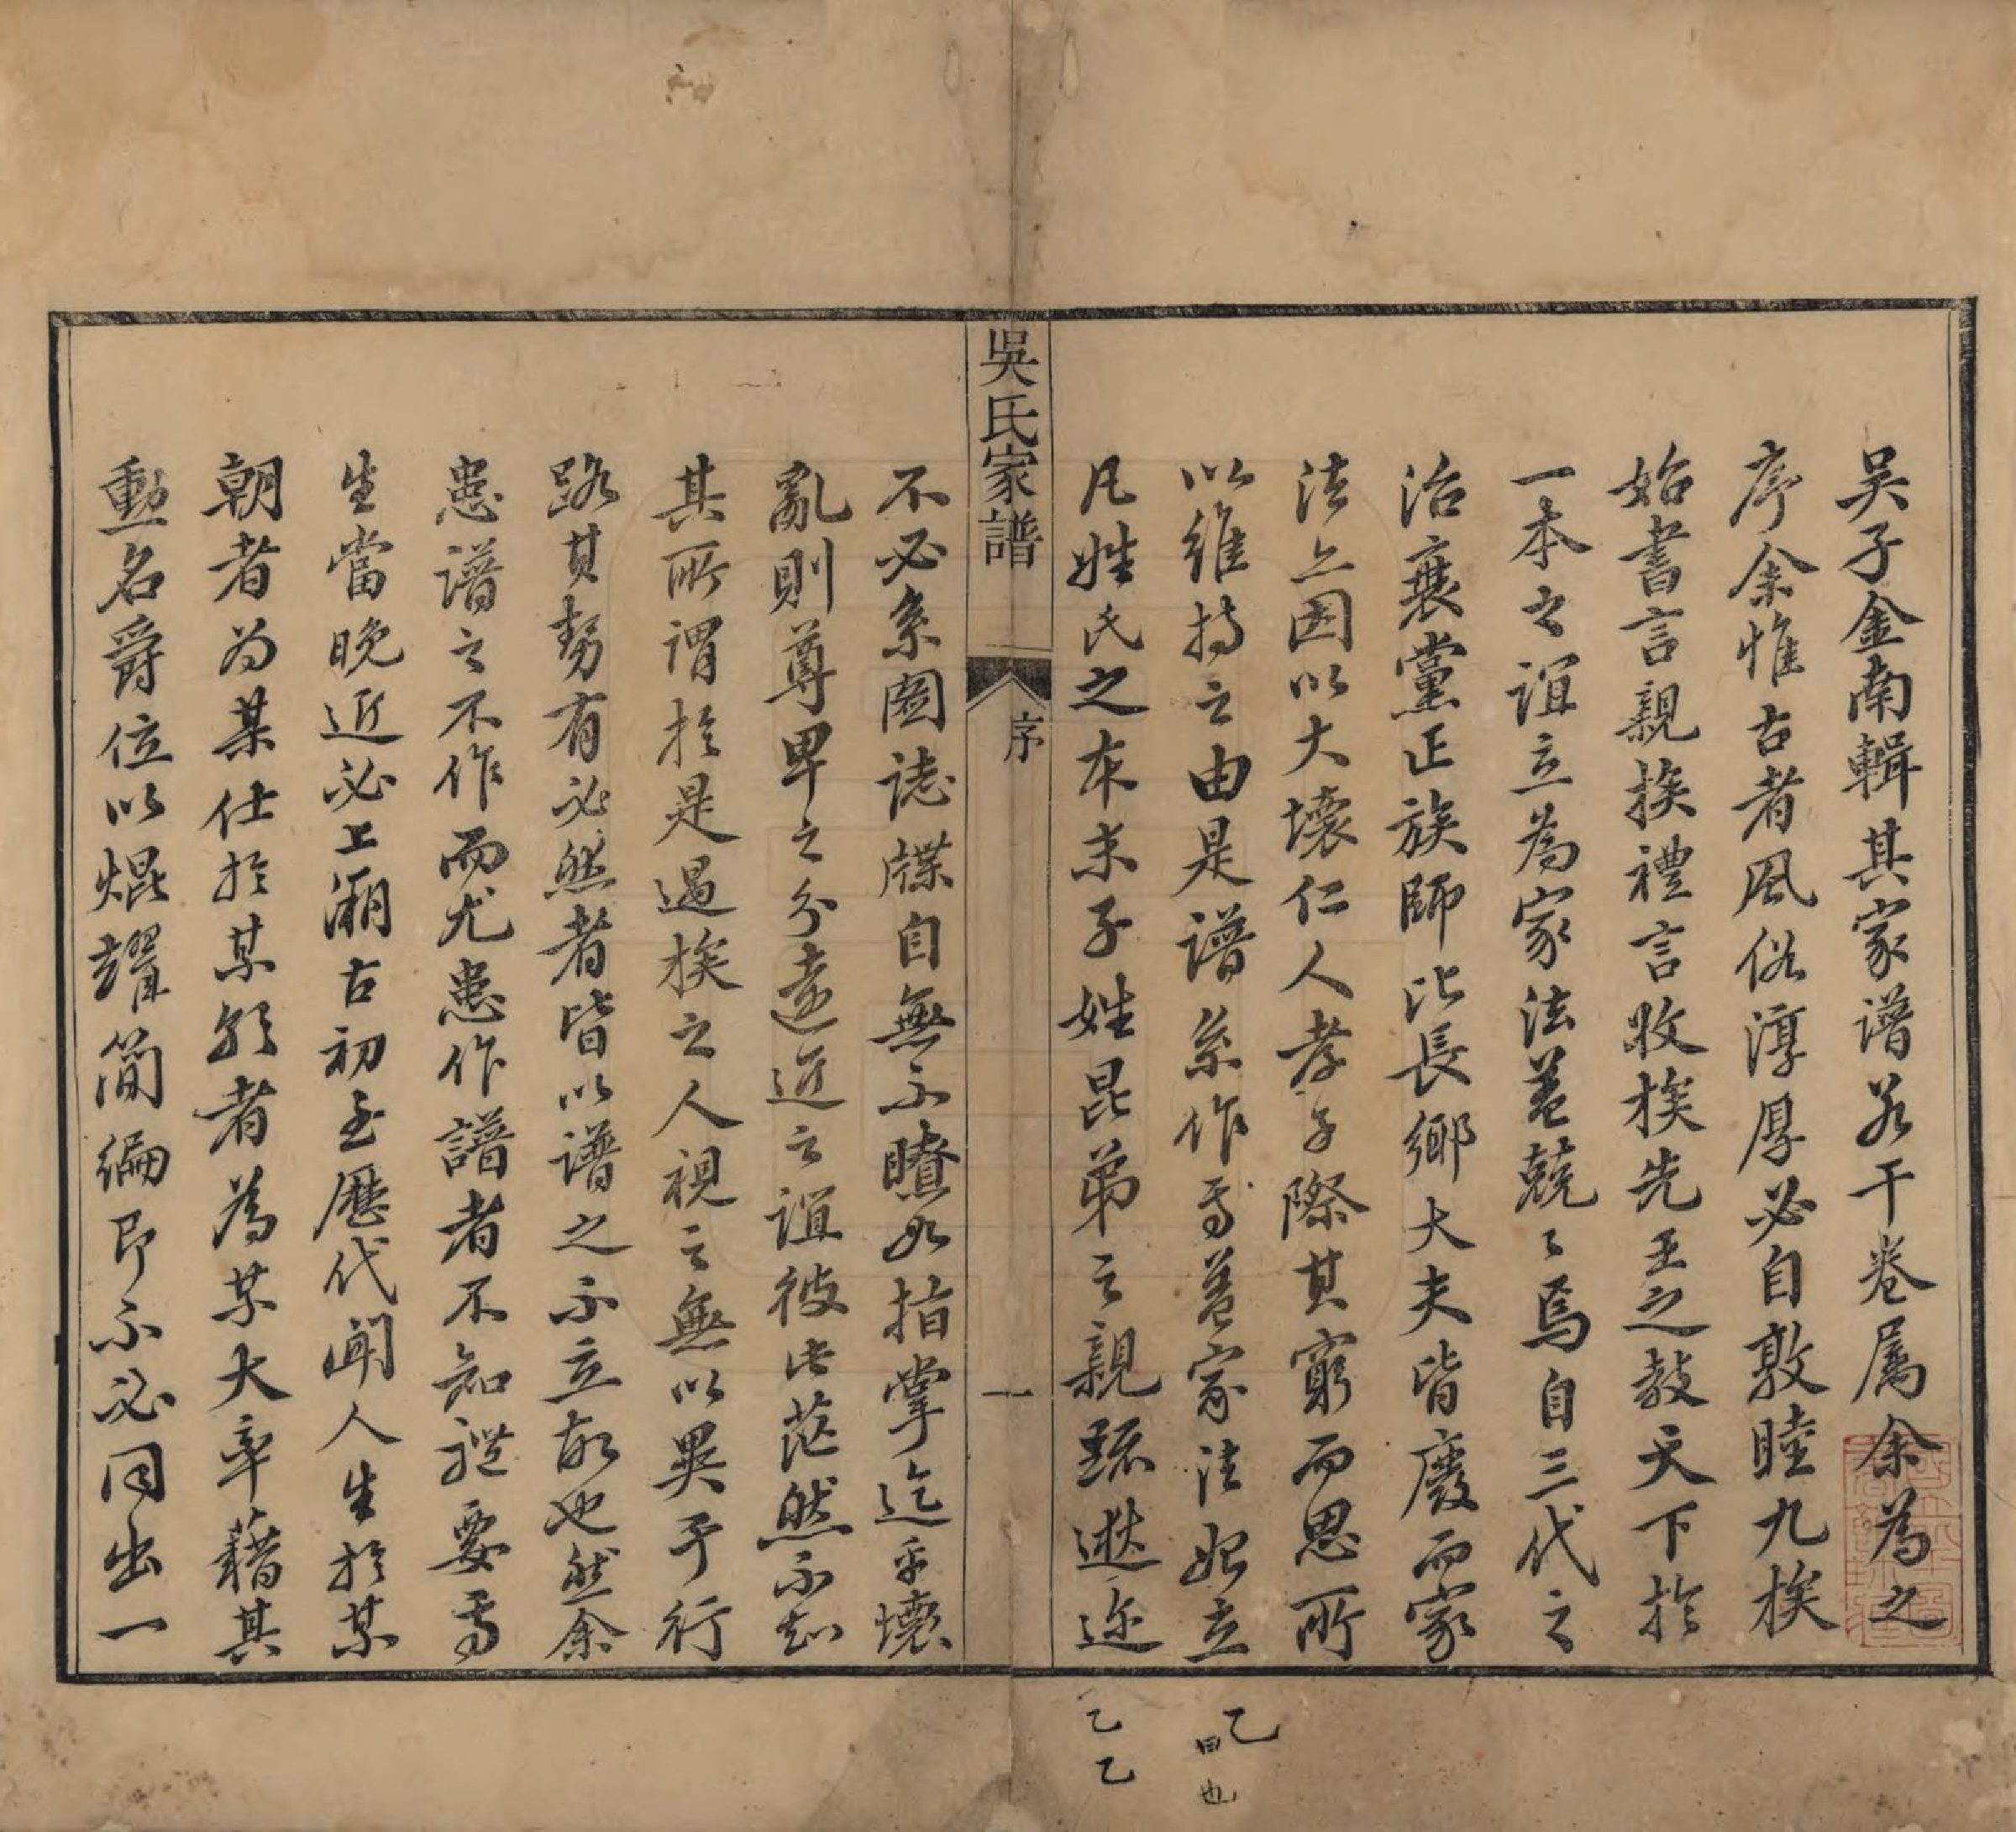 吴子金南輯其家谱若干卷属余為之
序余惟古者風俗淳厚必自敦睦九族
始書言親族禮言收族先王之教天下於
一本之誼立為家法蓋兢〻焉自三代之
治衰黨正族師比長鄉大夫皆廢而家
法亦因以大壞仁人孝子際其窮而思所
以維持之由是谱系作焉蓋家法始立
凡姓氏之本末子姓昆弟之親疏遐迩
吳氏家譜
序
一
不必系圖誌牒自無不瞭如指掌迄乎壞
亂則尊卑之分遠近之誼彼此茫然不知
其所謂於是遇族之人視之無以異于行
路其勢有必然者皆以谱之不立故也然余
患谱之不作而尤患作譜者不知體要焉
生當晚近必上溯古初至歷代聞人生於某
朝者为某仕於某影者為某大率藉其
勳名爵位以焜耀简编即不必同出一
乙
乙
乙
曰
也